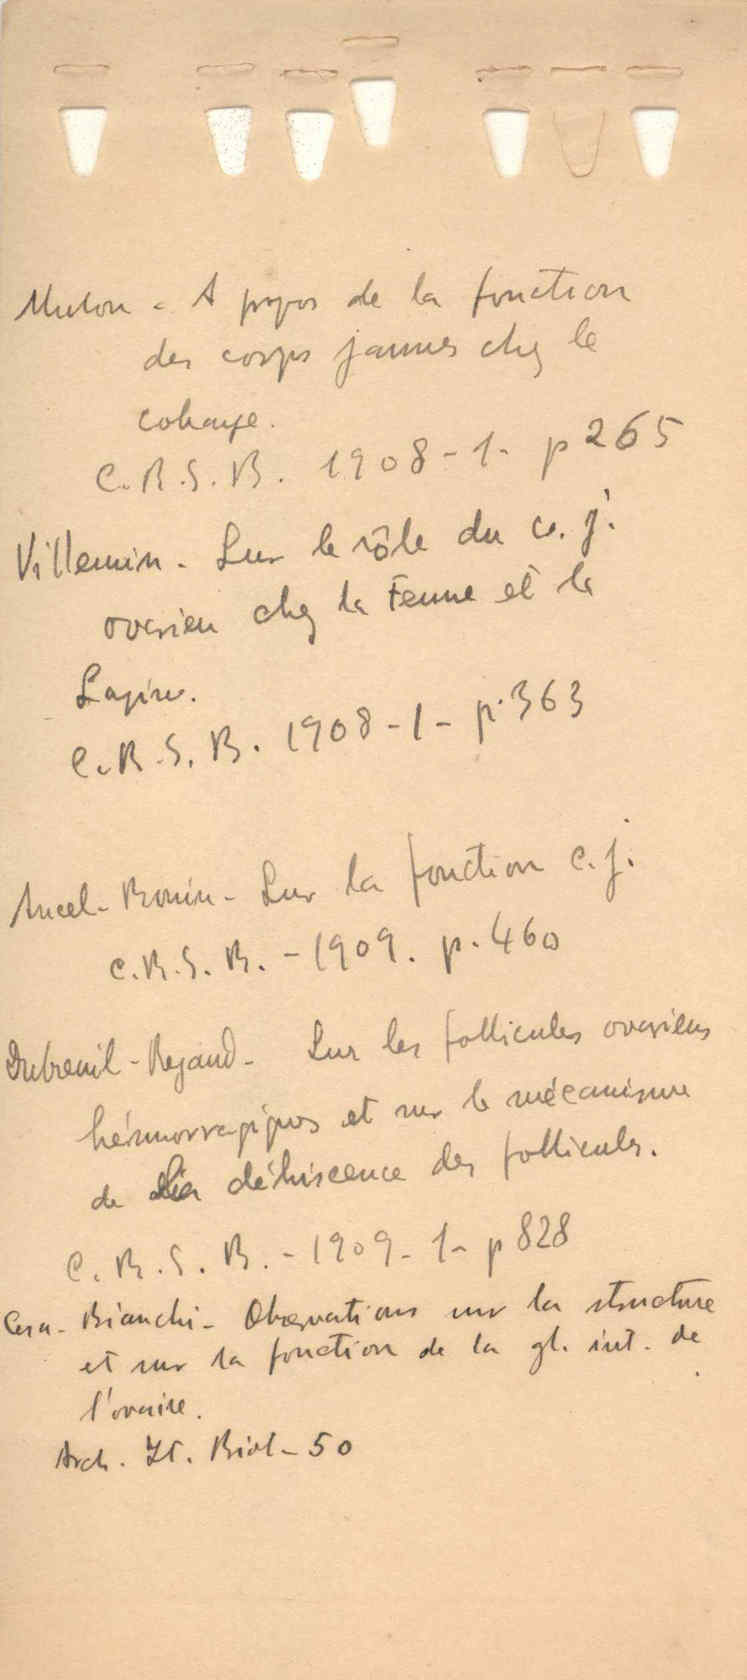 Mulon - A propos de la fonction
des corps jaunes chez le
cobaye.
C.R.S.B. 1908-1- p 265
Villemin - Sur le rôle du c. j.
ovarien chez la Femme et la
Lapine.
C.R.S.B. 1908-1- p. 363
Ancel-Bouin - Sur la fonction c.j.
C.R.S.B. - 1909. p. 460
Dubreuil-Regaud - Sur les follicules ovariens
hémorragiques et sur le mécanisme
de la déhiscence des follicules.
C.R.S.B. - 1909-1- p 828
Cesa-Bianchi - Observations sur la structure
et sur la fonction de la gl. int. de
l'ovaire.
Arch. It. Biol - 50